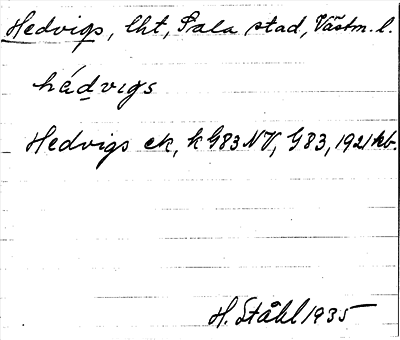 Hedvigs, lht, Sala stad, Västm. l.
hédvigs
Hedvigs ek, k G83 NV, G83, 1921 kb.
H. Ståhl 1935